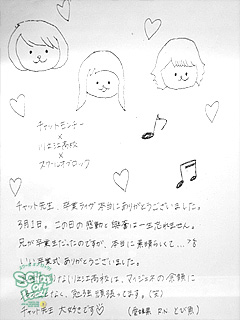 チャットモンチー
×
川之江高校
×
スクールオブロック
チャット先生、卒業ライヴ本当にありがとうございました。
3月1日。この日の感動と興奮は一生忘れません。
兄が卒業生だったのですが、本当に素晴らしくて…?8
いい卒業式ありがとうございました。
川之江高校は、マイジェネの合間に
なく、勉強頑張ってます。(笑)
チャット先生 大好きです♡
(愛媛県 R.N とび魚)